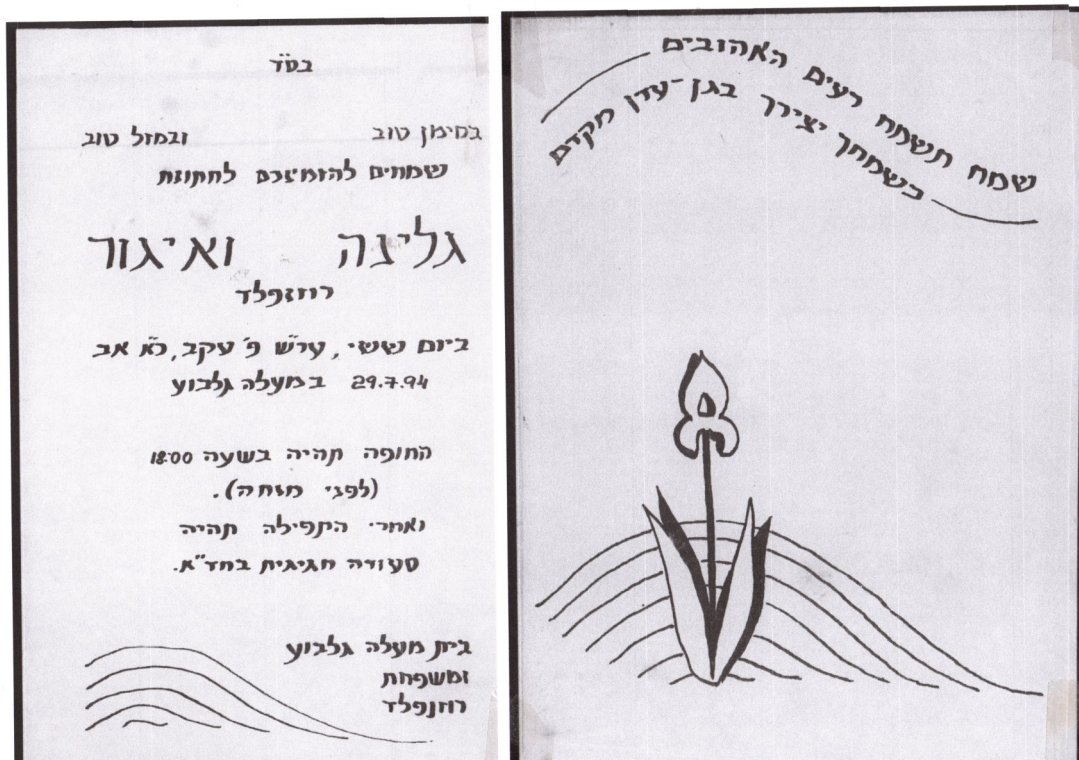 בס"ד
בסימן טוב ובמזל טוב
שמחים להזמינכם לחתונת
גלינה ואיגור
רוזנפלד
ביום ששי, ער"ש פ' עקב, כ"א אב
29.7.94 במעלה גלבוע
החופה תהיה בשעה 18:00
(לפני מנחה).
ואחרי התפילה תהיה
סעודה חגיגית בחד"א.
בית מעלה גלבוע
ומשפחת
רוזנפלד
שמח תשמח רעים האהובים
כשמחך יצירך בגן-עדן מקדם